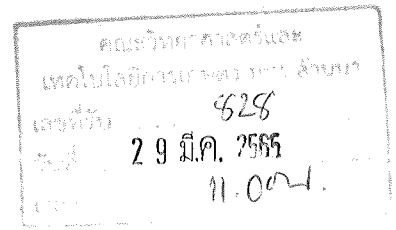 คณะวิทยาศาสตร์และ
เทคโนโลยีการเกษตร ลำปาง
เลขที่รับ 828
วันที่ 29 มี.ค. 2565
11.0